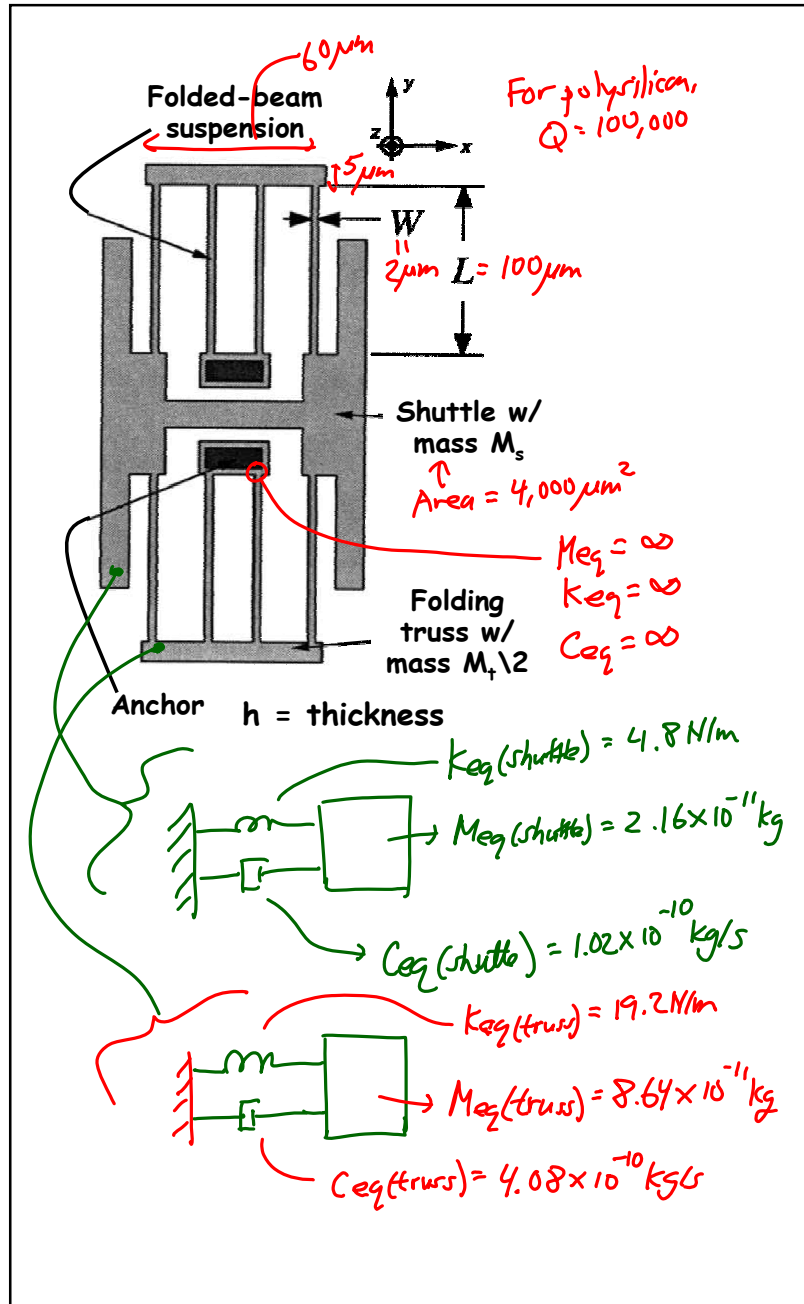 60μm
Folded-beam
suspension
y
z
x
For polysilicon,
Q = 100,000
5μm
W
=
2μm
L = 100μm
Shuttle w/
mass Ms
Area = 4,000μm²
Meq = ∞
Keq = ∞
Ceq = ∞
Folding
truss w/
mass Mt\2
Anchor
h = thickness
Keq(shuttle) = 4.8 N/m
Meq(shuttle) = 2.16×10⁻¹¹ kg
Ceq(shuttle) = 1.02×10⁻¹⁰ kg/s
Keq(truss) = 19.2 N/m
Meq(truss) = 8.64×10⁻¹¹ kg
Ceq(truss) = 4.08×10⁻¹⁰ kg/s